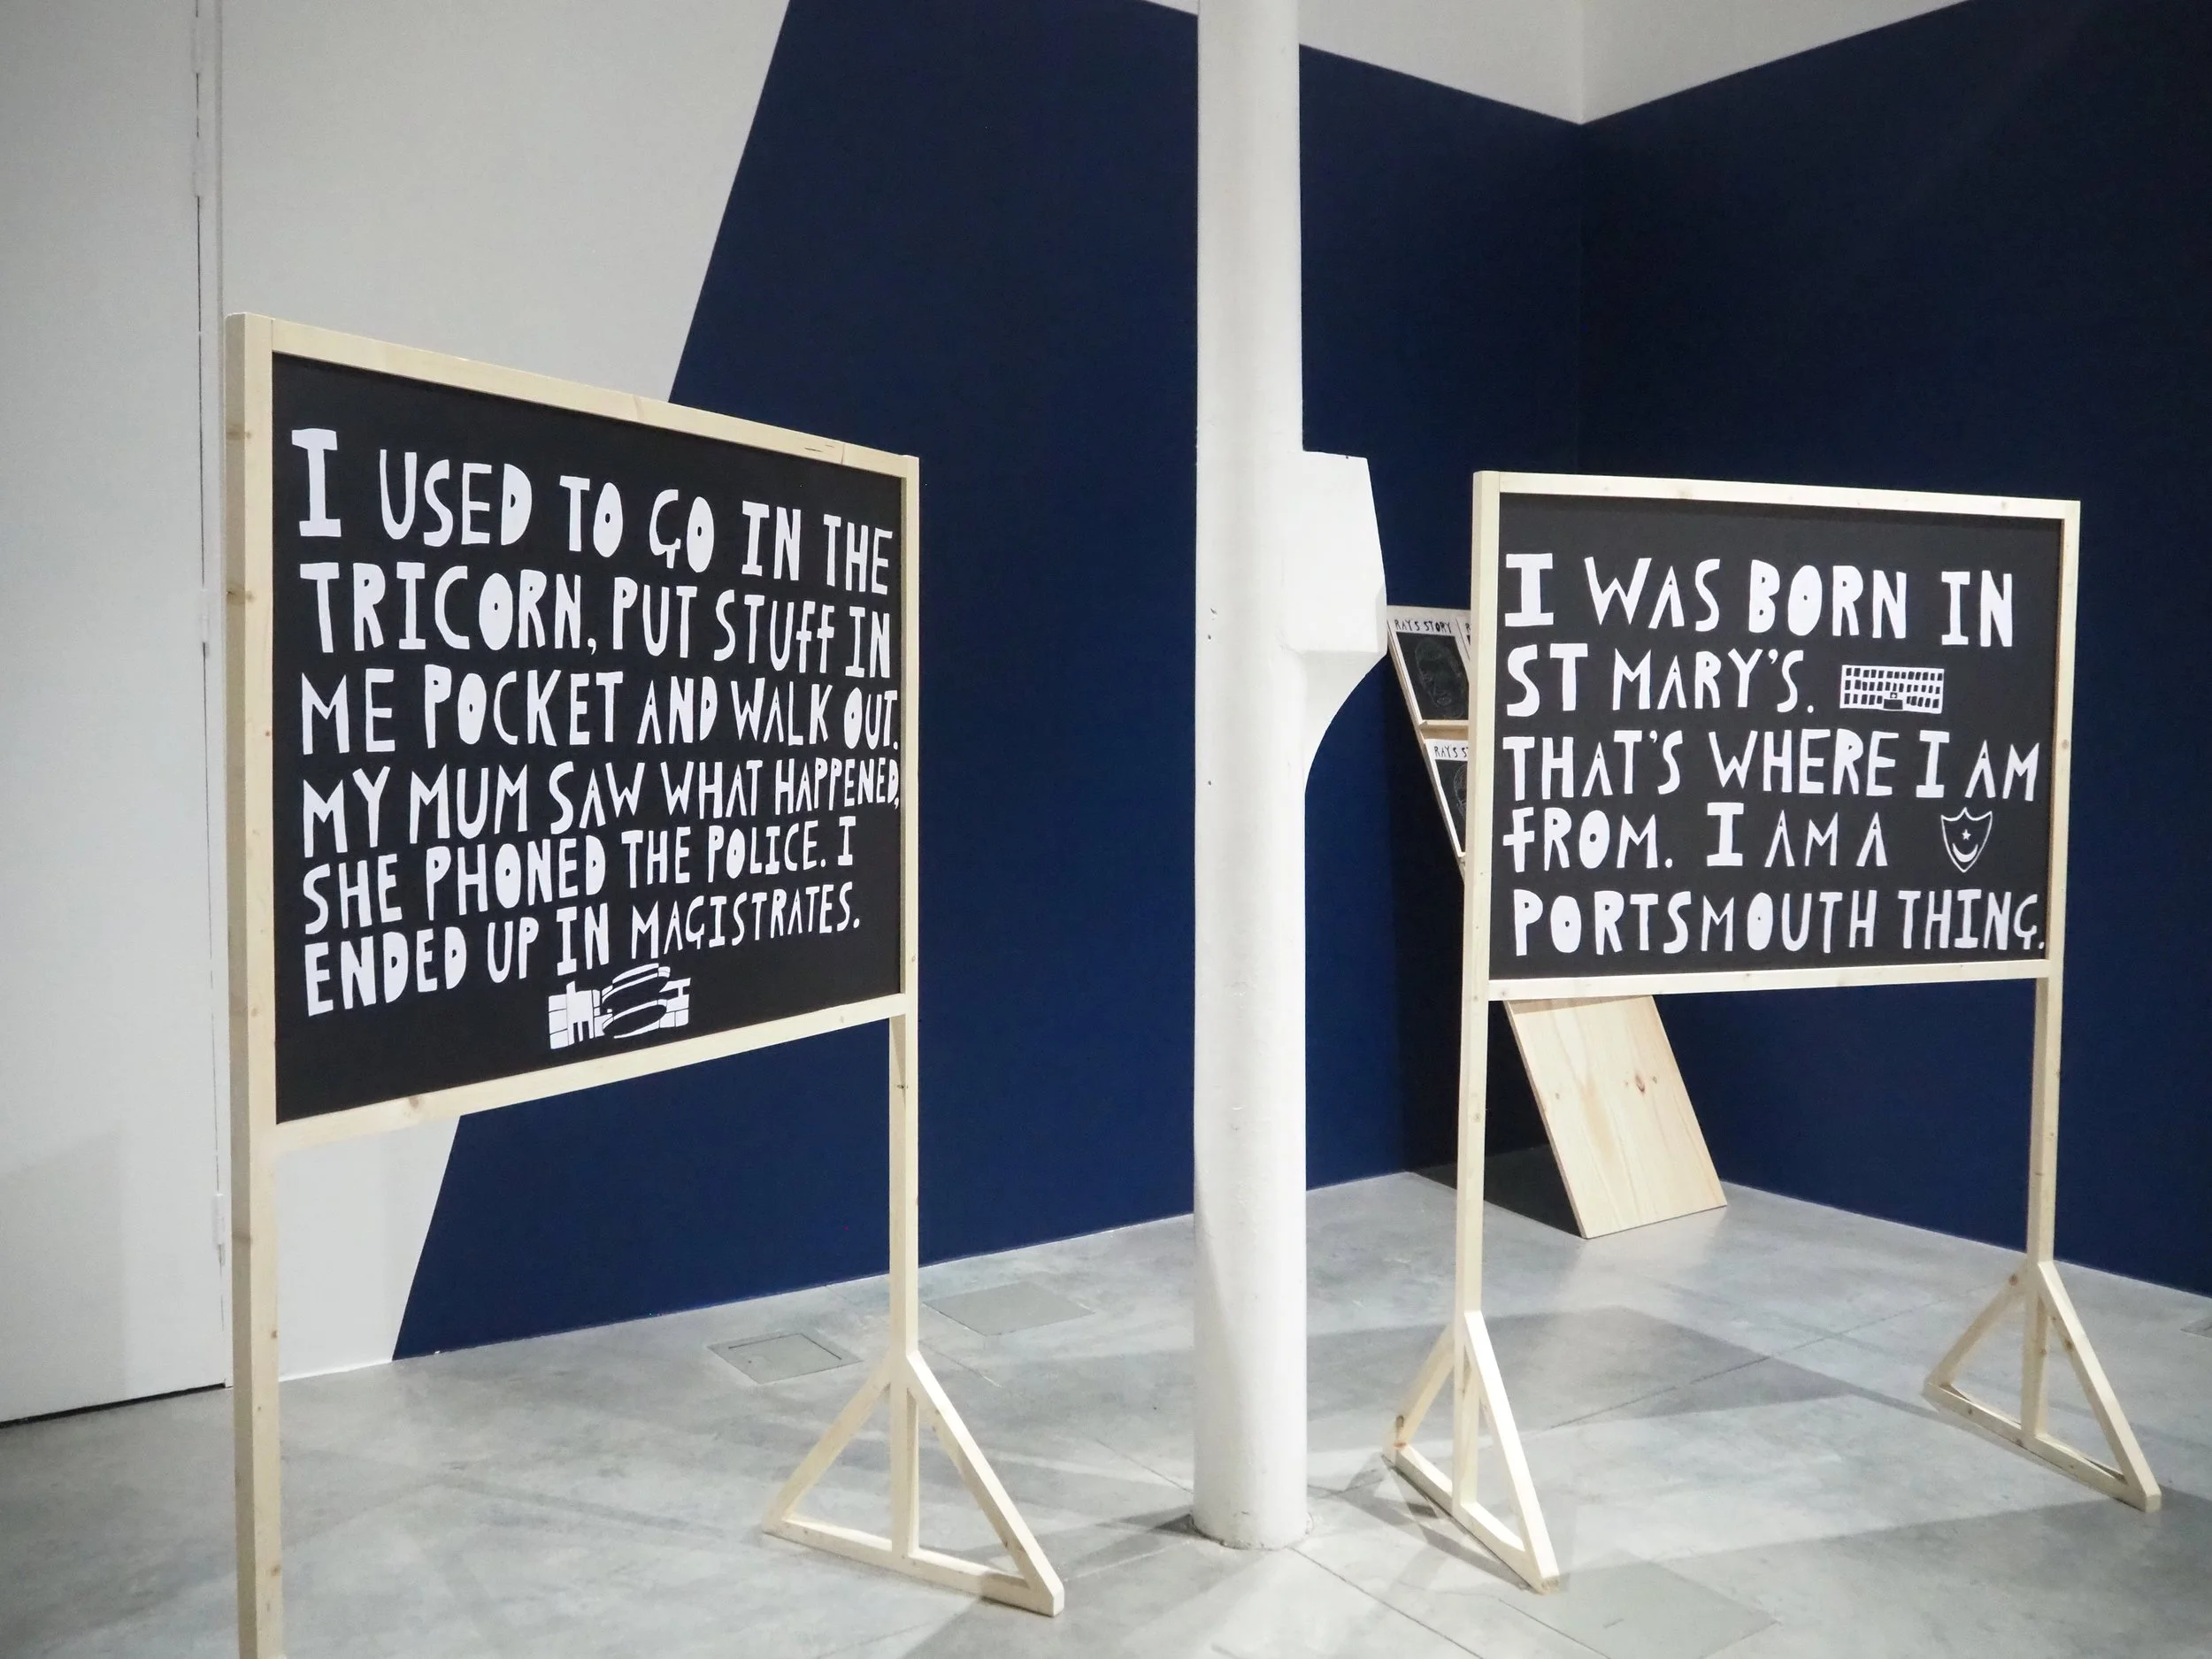 I USED TO GO IN THE
TRICORN, PUT STUFF IN
ME POCKET AND WALK OUT.
MY MUM SAW WHAT HAPPENED,
SHE PHONED THE POLICE. I
ENDED UP IN MAGISTRATES.
RAY'S STORY
RAY'S
I WAS BORN IN
ST MARY'S.
THAT'S WHERE I AM
FROM. I AM A
PORTSMOUTH THING.